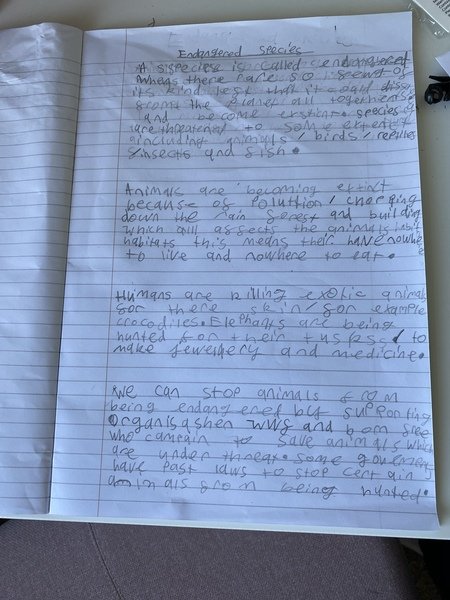 Endangered species
A species is called endangered
when there are so feew of
its kind left that it could diss
from the planet all together
and become exstint. species
are threatened to some extent
aincluding animals, birds, reptiles
insects and fish.
Animals are becoming extinct
because of Pollution, chopping
down the rain forest and building
which all affects the animals habit
habitats this means their have nowhe
to live and nowhere to eat.
Humans are killing exotic animals
for there skin, for example
crocodiles. Elephants are being
hunted for their tusks to
make jewellery and medicine.
we can stop animals from
being endangeref by supporting
Organisashen WWS and born free
who campain to save animals which
are under threat. some governmen
have past laws to stop certain
animals from being hunted.